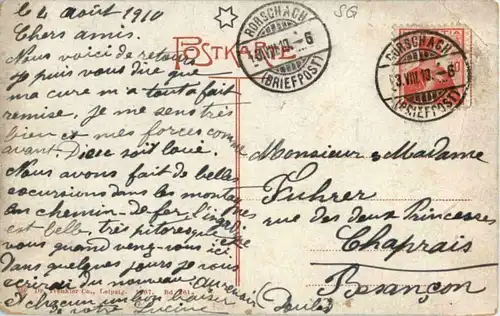 le 4 août 1910
SG
Chers amis.
POSTKARTE
RORSCHACH
3.VIII.10.-6
(BRIEFPOST)
RORSCHACH
3.VIII.10.-6
(BRIEFPOST)
Nous voici de retour
je puis vous dire que
ma cure m'a tout a fait
remise, je me sens très
bien et mes forces comme
avant Dieu soit loué.
Nous avons fait de belles
excursions dans les montagnes
en chemin-de-fer,
est belle, très pittoresque
vous quand veng-vous ici
Dans quelques jours je vous
ecrirai du nouveau. au revoir
et chacun un bon baiser
de votre Lucine
Monsieur & Madame
Fuhrer
rue des deux Princesses
Chaprais
Besançon
Doubs
Dr. Trenkler Co., Leipzig. 1907.